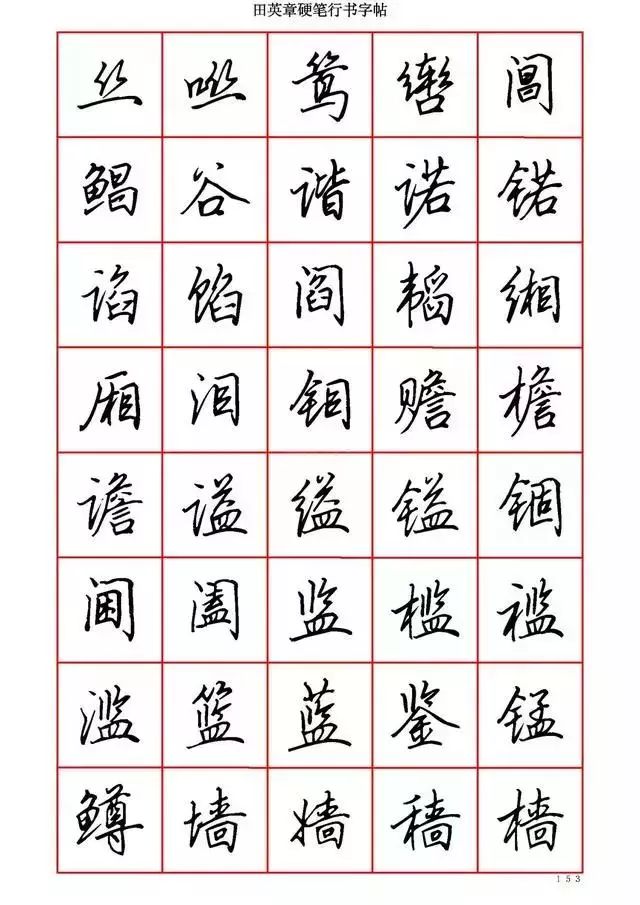 田英章硬笔行书字帖
丝 咝 鸶 辔 阊
鲳 谷 谐 诺 锘
谄 馅 阎 韬 缃
厢 泪 钼 赡 檐
谵 谥 缢 镒 锢
阃 阖 监 槛 褴
滥 篮 蓝 鉴 锰
鳟 墙 嫱 穑 樯
153